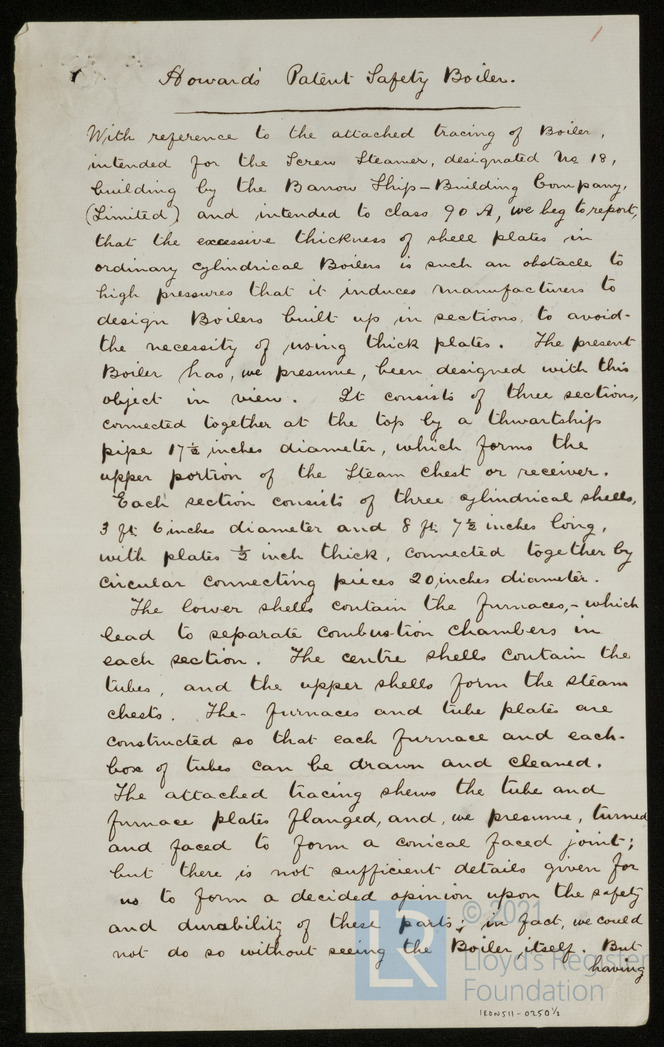 1
Howard's Patent Safety Boiler.
With reference to the attached tracing of Boiler,
intended for the Screw Steamer, designated No 18,
building by the Barrow Ship-Building Company,
(Limited) and intended to class 90 A, we beg to report,
that the excessive thickness of shell plates in
ordinary cylindrical Boilers is such an obstacle to
high pressures that it induces manufacturers to
design Boilers built up in sections, to avoid
the necessity of using thick plates. The present
Boiler has, we presume, been designed with this
object in view. It consists of three sections,
connected together at the top by a thwartship
pipe 17½ inches diameter, which forms the
upper portion of the Steam chest or receiver.
Each section consists of three cylindrical shells,
3 ft. 6 inches diameter and 8 ft. 7½ inches long,
with plates ½ inch thick, connected together by
circular connecting pieces 20 inches diameter.
The lower shells contain the furnaces,- which
lead to separate combustion chambers in
each section. The centre shells contain the
tubes, and the upper shells form the steam
chests. The furnaces and tube plates are
constructed so that each furnace and each
box of tubes can be drawn and cleaned.
The attached tracing shews the tube and
furnace plates flanged, and, we presume, turned
and faced to form a conical faced joint;
but there is not sufficient details given for
us to form a decided opinion upon the safety
and durability of these parts; in fact, we could
not do so without seeing the Boiler itself. But
having
© 2021
LR
Lloyd's Register
Foundation
IRON511-0250 1/2